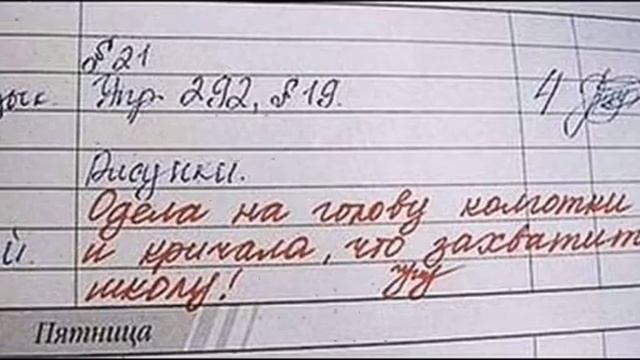 §21
Упр. 292, §19. 4
Рисунки.
Одела на голову колготки
й. и кричала, что захватит
школу!
Пятница